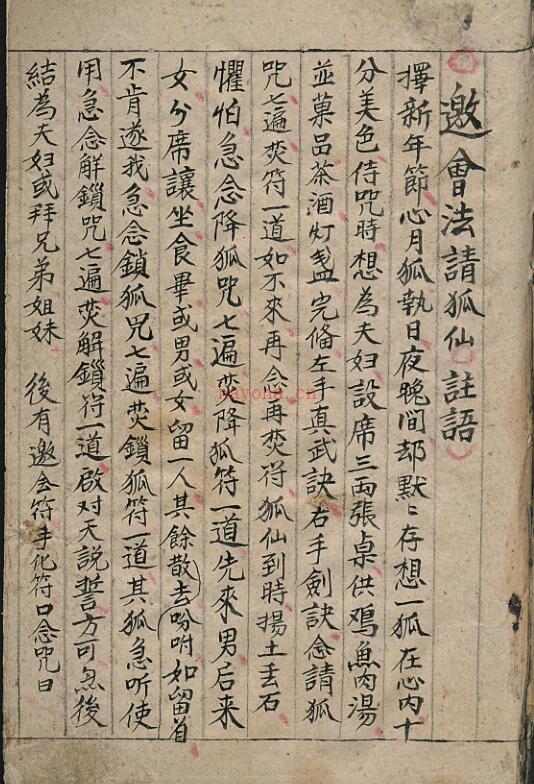 邀會法請狐仙註語
擇新年節心月狐執日夜晚間却默〻存想一狐在心内十
分美色侍咒時想為夫妇設席三両張桌供鸡魚肉湯
並菓品茶酒灯盏完俻左手真武訣右手劍訣念請狐
咒七遍焚符一道如不來再念再焚符狐仙到時揚土丢石
懼怕急念降狐咒七遍焚降狐符一道先來男后来
女分席讓坐食畢或男或女留一人其餘散去吩咐如留首
不肯遂我急念鎖狐咒七遍焚鎖狐符一道其狐急听使
用急念解鎖咒七遍焚解鎖符一道啟对天説誓方可為後
結為夫妇或拜兄弟姐妹 後有邀会符手化符口念咒曰
nayona.cn